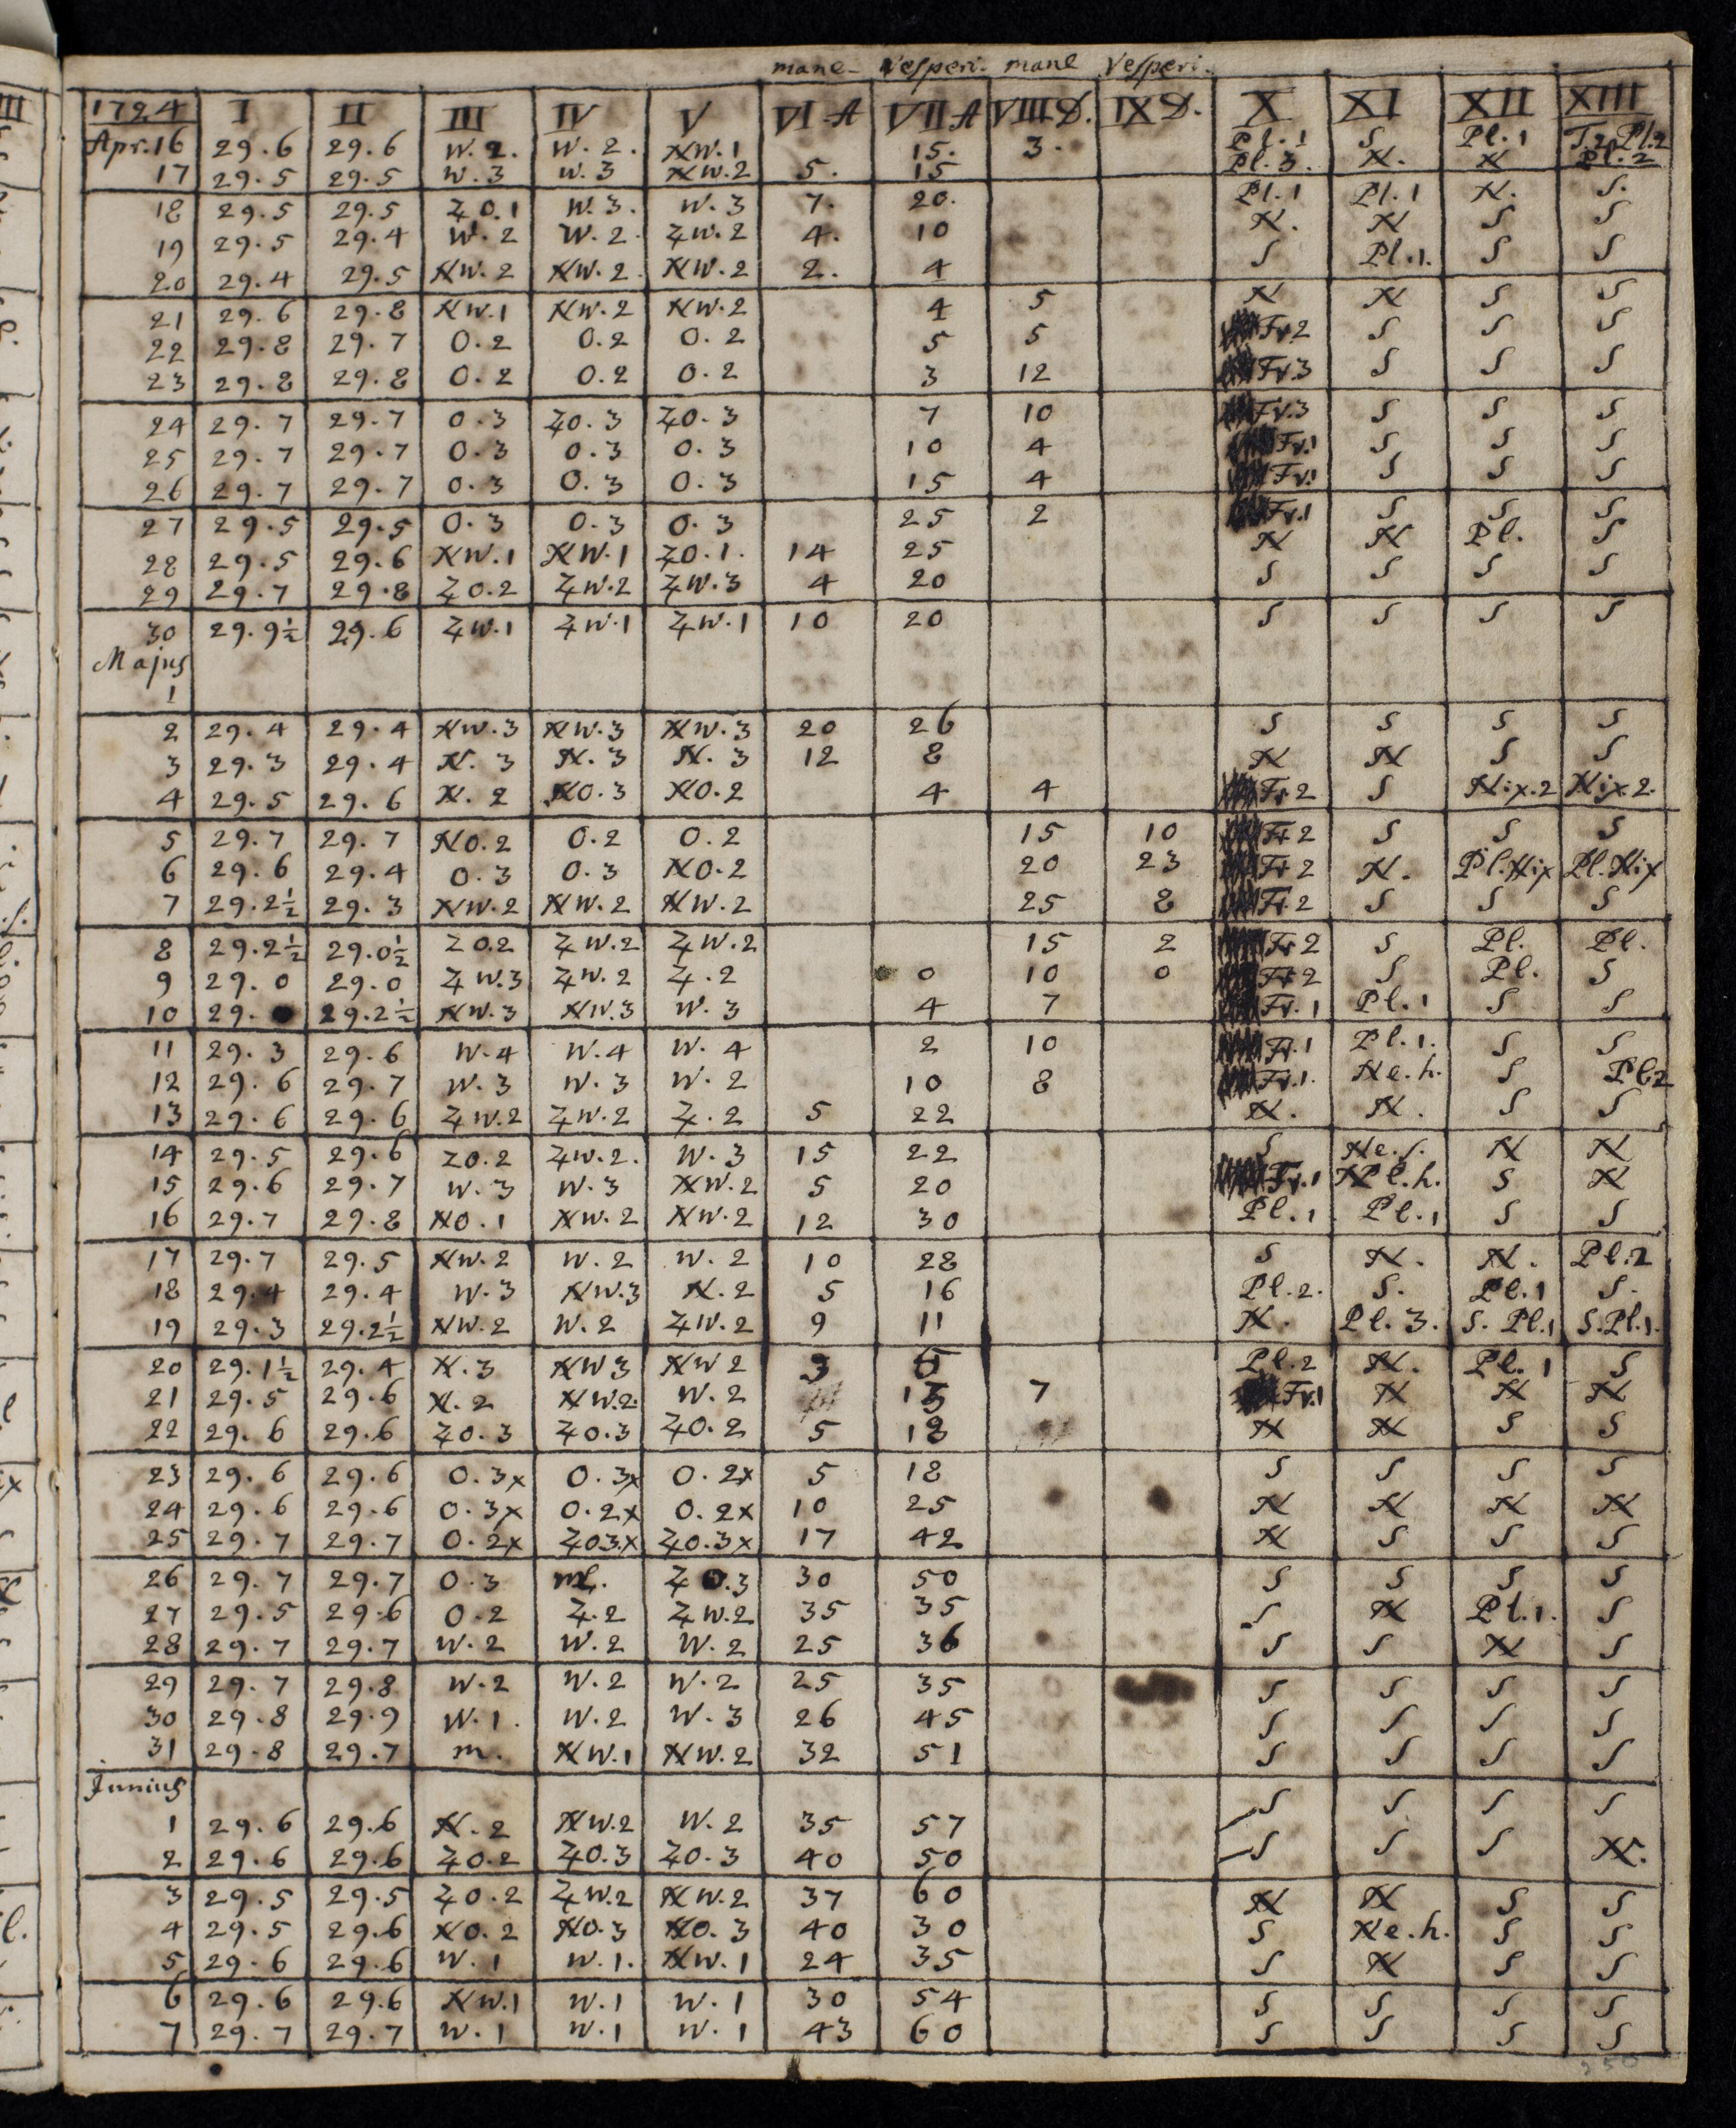 mane Vesperi. mane Vesperi.
1724 I II III IV V VI A VII A VIII D. IX D. X XI XII XIII
Apr. 16 29.6 29.6 W.2. W.2. NW.1 15. 3. Pl.1 S Pl.1 T.2.Pl.2
17 29.5 29.5 W.3 W.3 NW.2 5. 15 Pl.3. N. N Pl.2
18 29.5 29.5 ZO.1 W.3. W.3 7. 20. Pl.1 Pl.1 N. S.
19 29.5 29.4 W.2 W.2. ZW.2 4. 10 N. N S S
20 29.4 29.5 NW.2 NW.2. NW.2 2. 4 S Pl.1. S S
21 29.6 29.8 NW.1 NW.2 NW.2 4 5 N N S S
22 29.8 29.7 O.2 O.2 O.2 5 5 Fr.2 S S S
23 29.8 29.8 O.2 O.2 O.2 3 12 Fr.3 S S S
24 29.7 29.7 O.3 ZO.3 ZO.3 7 10 Fr.3 S S S
25 29.7 29.7 O.3 O.3 O.3 10 4 Fr.1 S S S
26 29.7 29.7 O.3 O.3 O.3 15 4 Fr.1 S S S
27 29.5 29.5 O.3 O.3 O.3 25 2 Fr.1 S S S
28 29.5 29.6 NW.1 NW.1 ZO.1. 14 25 N N Pl. S
29 29.7 29.8 ZO.2 ZW.2 ZW.3 4 20 S S S S
30 29.9½ 29.6 ZW.1 ZW.1 ZW.1 10 20 S S S S
Majus
1
2 29.4 29.4 NW.3 NW.3 NW.3 20 26 S S S S
3 29.3 29.4 N.3 N.3 N.3 12 8 N N S S
4 29.5 29.6 N.2 NO.3 NO.2 4 4 Fr.2 S Nix.2 Nix.2.
5 29.7 29.7 NO.2 O.2 O.2 15 10 Fr.2 S S S
6 29.6 29.4 O.3 O.3 NO.2 20 23 Fr.2 N. Pl.Nix Pl.Nix
7 29.2½ 29.3 NW.2 NW.2 NW.2 25 8 Fr.2 S S S
8 29.2½ 29.0½ ZO.2 ZW.2 ZW.2 15 2 Fr.2 S Pl. Pl.
9 29.0 29.0 ZW.3 ZW.2 Z.2 0 10 0 Fr.2 S Pl. S
10 29. 29.2½ NW.3 NW.3 W.3 4 7 Fr.1 Pl.1 S S
11 29.3 29.6 W.4 W.4 W.4 2 10 Fr.1 Pl.1. S S
12 29.6 29.7 W.3 W.3 W.2 10 8 Fr.1. Ne.h. S Pl.2
13 29.6 29.6 ZW.2 ZW.2 Z.2 5 22 N. N. S S
14 29.5 29.6 ZO.2 ZW.2. W.3 15 22 S Ne.s. N N
15 29.6 29.7 W.3 W.3 NW.2 5 20 Fr.1 NPl.h. S N
16 29.7 29.8 NO.1 NW.2 NW.2 12 30 Pl.1 Pl.1 S S
17 29.7 29.5 NW.2 W.2 W.2 10 28 S N. N. Pl.2
18 29.4 29.4 W.3 NW.3 N.2 5 16 Pl.2. S. Pl.1 S.
19 29.3 29.2½ NW.2 W.2 ZW.2 9 11 N. Pl.3. S.Pl.1 S.Pl.1.
20 29.1½ 29.4 N.3 NW3 NW2 3 Pl.2 N. Pl.1 S
21 29.5 29.6 N.2 NW.2. W.2 7 Fr.1 N N N
22 29.6 29.6 ZO.3 ZO.3 ZO.2 5 18 N N S S
23 29.6 29.6 O.3x O.3x O.2x 5 18 S S S S
24 29.6 29.6 O.3x O.2x O.2x 10 25 N N N N
25 29.7 29.7 O.2x ZO3x ZO.3x 17 42 N S S S
26 29.7 29.7 O.3 Z O.3 30 50 S S S S
27 29.5 29.6 O.2 Z.2 ZW.2 35 35 S N Pl.1. S
28 29.7 29.7 W.2 W.2 W.2 25 36 S S N S
29 29.7 29.8 W.2 W.2 W.2 25 35 S S S S
30 29.8 29.9 W.1. W.2 W.3 26 45 S S S S
31 29.8 29.7 m. NW.1 NW.2 32 51 S S S S
Junius
1 29.6 29.6 N.2 NW.2 W.2 35 57 S S S S
2 29.6 29.6 ZO.2 ZO.3 ZO.3 40 50 S S S N.
3 29.5 29.5 ZO.2 ZW.2 NW.2 37 60 N N S S
4 29.5 29.6 NO.2 NO.3 NO.3 40 30 S Ne.h. S S
5 29.6 29.6 W.1 W.1. NW.1 24 35 S N S S
6 29.6 29.6 NW.1 W.1 W.1 30 54 S S S S
7 29.7 29.7 W.1 W.1 W.1 43 60 S S S S